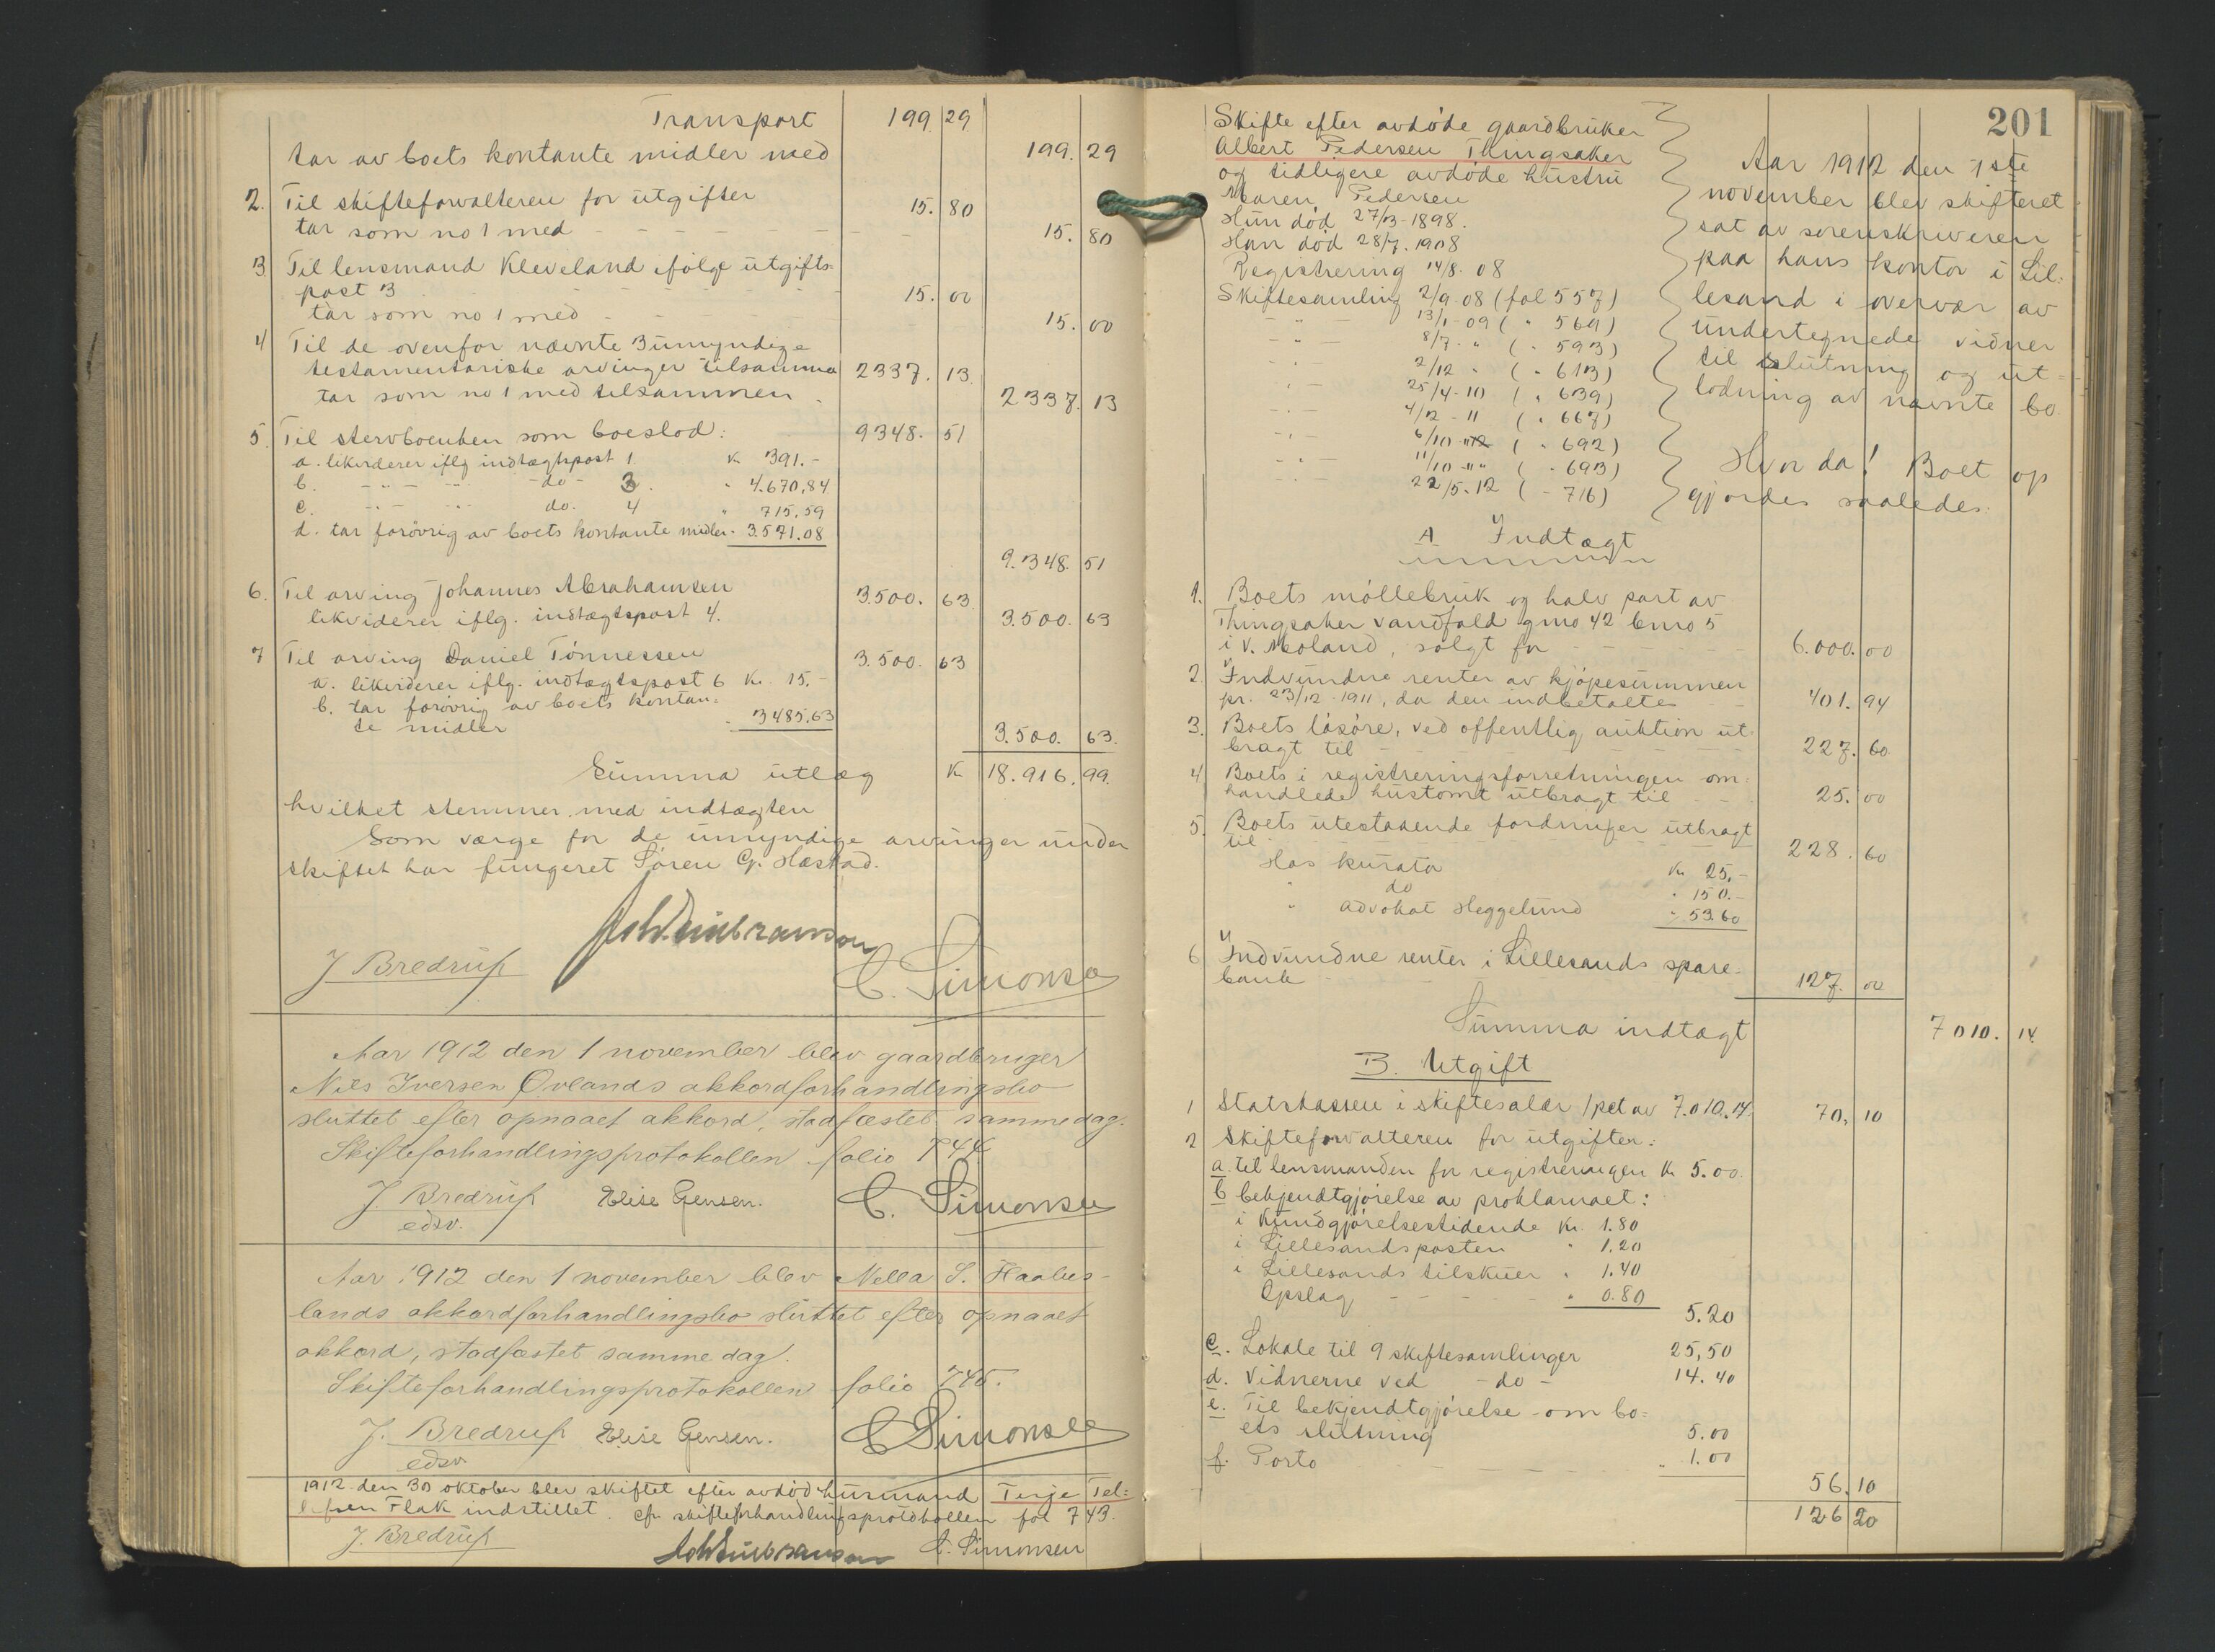 Transport 199 29
tar av boets kontante midler med 199. 29
2. Til skifteforvalteren for utgifter 15. 80
tar som no 1 med - - - - - 15. 80
3. Til lensmand Kleveland ifølge utgifts-
post 3 - - - - - 15. 00
tar som no 1 med - - - 15. 00
4 Til de ovenfor nævnte 3 umyndige
testamentariske arvinger tilsamma 2337. 13.
tar som no 1 med tilsammen - 2337 13
5. Til stervboenken som boeslod: 9348. 51
a. likviderer iflg indtægtspost 1 K 391.-
b. -"- -"- do - 3. " 4.670,84
c. -"- -"- do. 4 " 715.59
d. tar forøvrig av boets kontante midler " 3.571.08
9.348. 51
6. Til arving Johannes Abrahamsen 3.500. 63.
likviderer iflg. indtægtspost 4. 3.500. 63
7 Til arving Daniel Tønnessen 3.500. 63
a. likviderer iflg. indtægtspost 6 Kr. 15.-
b. tar forøvrig av boets kontan-
te midler " 3485.63
3.500. 63.
Summa utlæg K 18.916. 99.
hvilket stemmer med indtægten
Som værge for de umyndige arvinger under
skiftet har fungeret Søren G. Hæstad.
J Bredrup C. Simonsen
Aar 1912 den 1 november blev gaardbruger
Nils Iversen Øvlands akkordforhandlingsbo
sluttet efter opnaaet akkord, stadfæstet samme dag.
Skifteforhandlingsprotokollen folio 744
J. Bredrup Elise Jensen. C. Simonsen
edsv.
Aar 1912 den 1 november blev Nella S. Haabes-
lands akkordforhandlingsbo sluttet efter opnaaet
akkord, stadfæstet samme dag.
Skifteforhandlingsprotokollen folio 745.
J. Bredrup Elise Jensen. C Simonsen
edsv
1912 den 30 oktober blev skiftet efter avdød husmand Terje Tel-
lefsen Flak indstillet. cfr. skifteforhandlingsprotokollen fol 743.
J. Bredrup C. Simonsen
201
Skifte efter avdøde gaardbruker
Albert Pedersen Thingsaker
og tidligere avdøde hustru
Maren Pedersen
Hun død 27/3-1898.
Han død 28/7. 1908
Registrering 14/8. 08
Skiftesamling 2/9-08 (fol 557)
- " - 13/1-09 ( " 569)
- " - 8/7- " ( " 593)
- " - 2/12 " ( " 613)
- " - 25/4-10 ( " 639)
- " - 4/12-11 ( " 667)
- " - 6/10 - 12 ( " 692)
- " - 11/10 - " ( " 693)
- " - 22/5-12 ( - 716)
Aar 1912 den 1ste
november blev skifteret
sat av sorenskriveren
paa hans kontor i Lil-
lesand i overvær av
undertegnede vidner
til slutning og ut-
lodning av nævnte bo.
Hvor da! Boet op
gjordes saaledes:
A Indtægt
1. Boets møllebruk og halv part av
Thingsaker vandfald gno 42 bno 5
i V. Moland, solgt for - - - 6.000. 00
2. Indvundne renter av kjøpesummen
pr. 23/12-1911, da den indbetaltes - - 401. 94
3. Boets løsøre, ved offentlig auktion ut-
bragt til - - - - - 227. 60
4 Boets i registreringsforretningen om-
handlede hustomt utbragt til - - 25. 00
5. Boets utestaaende fordringer utbragt
til - - - - - 228. 60
Hos kurator Kr 25.-
" do " 150.-
" advokat Heggelund " 53.60
6 Indvundne renter i Lillesands spare-
bank - - 127. 00
Summa indtægt 7010. 14.
B. Utgift
1 Statskassen i skiftesalær 1 pct av 7.010.14. 70. 10
2 Skifteforvalteren for utgifter:
a. til lensmanden for registreringen Kr 5.00.
b bekjendtgjørelse av proklamaet:
i Kundgjørelsestidende Kr. 1.80
i Lillesandsposten " 1.20
i Lillesands tilskuer " 1.40
Opslag - - - - " 0.80
5.20
c. Lokale til 9 skiftesamlinger 25,50
d. Vidnerne ved - do - 14.40
e. Til bekjendtgjørelse om bo-
ets slutning 5.00
f. Porto - - - - " 1.00
56. 10
126 20